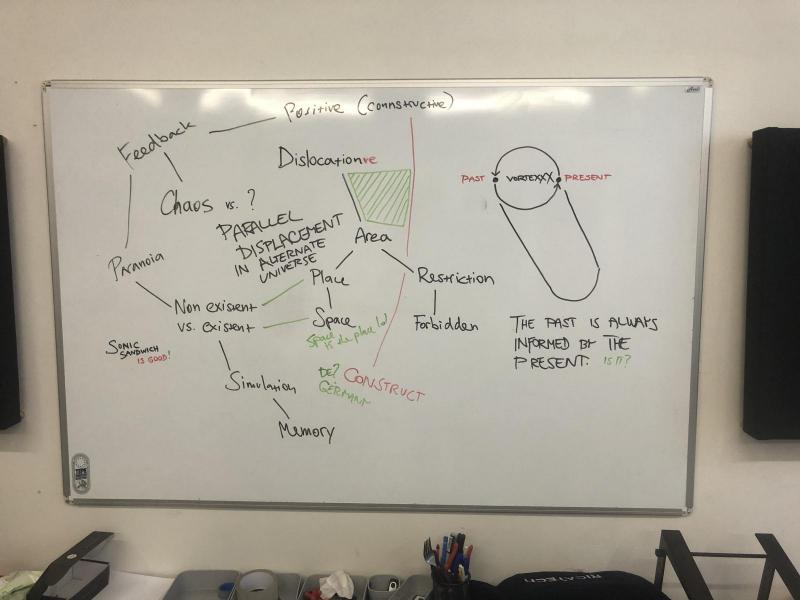 Positive (connstructive)
Feedback
Dislocationre
Chaos vs. ?
PARALLEL
DISPLACEMENT
IN ALTERNATE
UNIVERSE
Area
Paranoia
Place
Restriction
Non existent
vs. existent
Space
Forbidden
Space
is the place lol
SONIC
SANDWICH
IS GOOD!
Simulation
DE?
GERMANN
CONSTRUCT
Memory
PAST VORTEXXX PRESENT
THE PAST IS ALWAYS
INFORMED BY THE
PRESENT. IS IT?
RICATECH